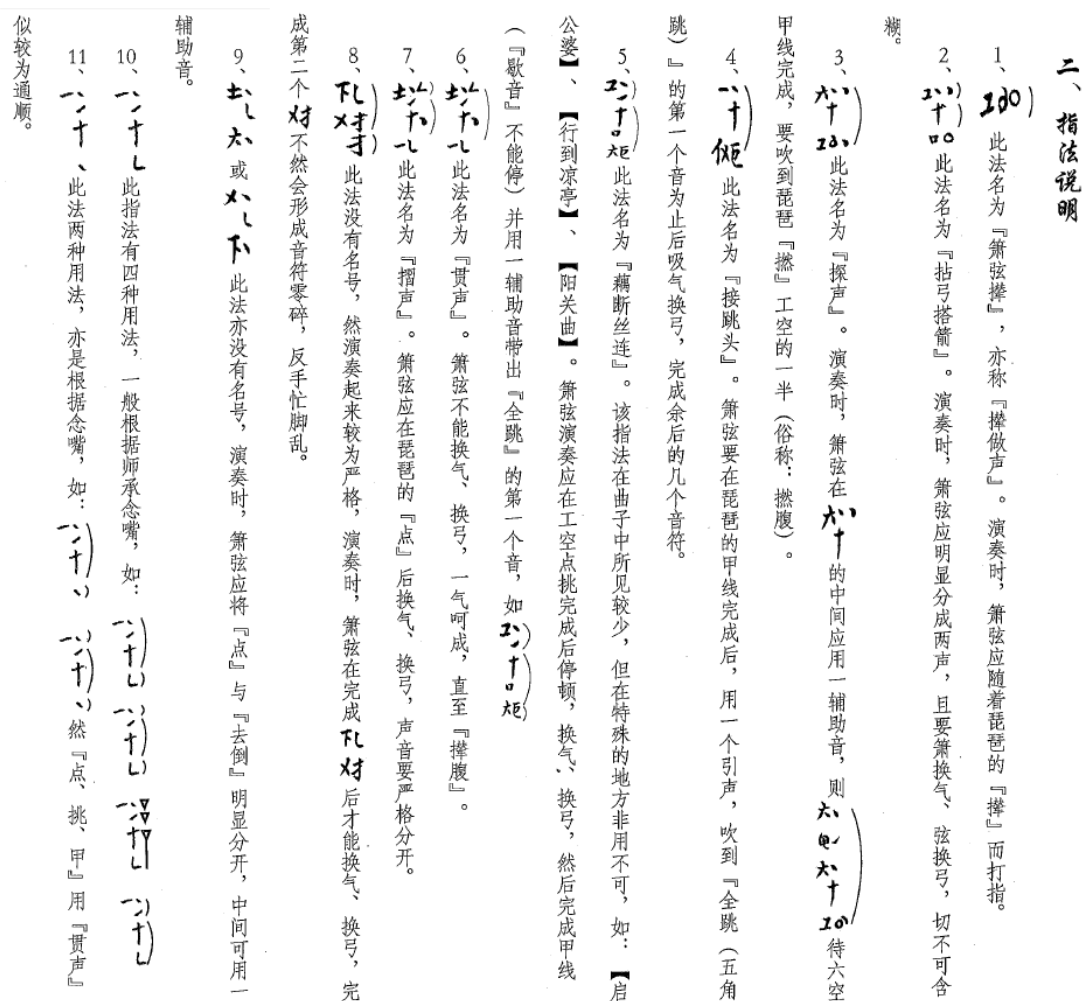 二、指法说明
1、此法名为『箫弦撵』，亦称『撵做声』。演奏时，箫弦应随着琵琶的『撵』而打指。
2、此法名为『拈弓搭箭』。演奏时，箫弦应明显分成两声，且要箫换气、弦换弓，切不可含
糊。
3、此法名为『探声』。演奏时，箫弦在六十的中间应用一辅助音，则待六空
甲线完成，要吹到琵琶『撚』工空的一半（俗称：撚腹）。
4、此法名为『接跳头』。箫弦要在琵琶的甲线完成后，用一个引声，吹到『全跳（五角
跳）』的第一个音为止后吸气换弓，完成余后的几个音符。
5、此法名为『藕断丝连』。该指法在曲子中所见较少，但在特殊的地方非用不可，如：【启
公婆】、【行到凉亭】、【阳关曲】。箫弦演奏应在工空点挑完成后停顿，换气、换弓，然后完成甲线
（『歇音』不能停）并用一辅助音带出『全跳』的第一个音，如
6、此法名为『贯声』。箫弦不能换气、换弓，一气呵成，直至『撵腹』。
7、此法名为『摺声』。箫弦应在琵琶的『点』后换气、换弓，声音要严格分开。
8、此法没有名号，然演奏起来较为严格，演奏时，箫弦在完成后才能换气、换弓，完
成第二个不然会形成音符零碎，反手忙脚乱。
9、或此法亦没有名号，演奏时，箫弦应将『点』与『去倒』明显分开，中间可用一
辅助音。
10、此指法有四种用法，一般根据师承念嘴，如：
11、此法两种用法，亦是根据念嘴，如：然『点、挑、甲』用『贯声』
似较为通顺。